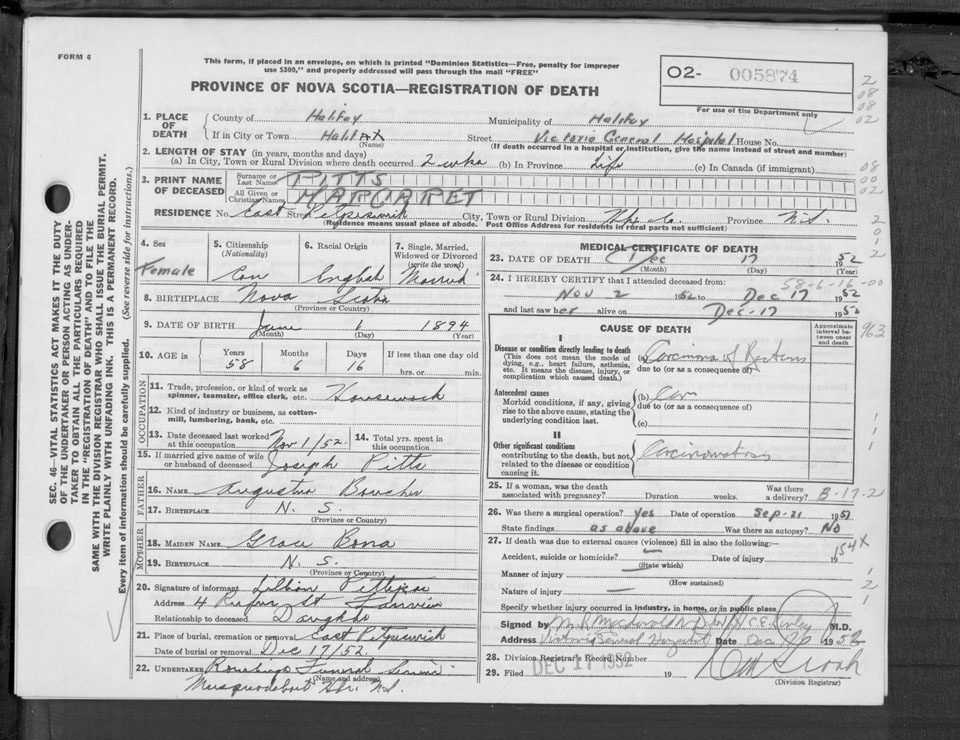 FORM 6
This form, if placed in an envelope, on which is printed "Dominion Statistics—Free, penalty for improper
use $300," and properly addressed will pass through the mail "FREE"
PROVINCE OF NOVA SCOTIA—REGISTRATION OF DEATH
O2- 005874
For use of the Department only
1. PLACE OF DEATH
County of Halifax Municipality of Halifax
If in City or Town Halifax Street Victoria General Hospital House No.
(Name) (If death occurred in a hospital or institution, give the name instead of street and number)
2. LENGTH OF STAY (in years, months and days)
(a) In City, Town or Rural Division where death occurred 2 wks (b) In Province Life (c) In Canada (if immigrant)
3. PRINT NAME OF DECEASED
Surname or Last Name PITTS
All Given or Christian Names MARGARET
RESIDENCE No. East Street Petpeswick City, Town or Rural Division Hfx. Co. Province N.S.
(Residence means usual place of abode. Post Office Address for residents in rural parts not sufficient)
4. Sex Female
5. Citizenship (Nationality) Can
6. Racial Origin English
7. Single, Married, Widowed or Divorced (write the word) Married
8. BIRTHPLACE Nova Scotia
(Province or Country)
9. DATE OF BIRTH June 1 1894
(Month) (Day) (Year)
10. AGE in Years 58 Months 6 Days 16 If less than one day old
hrs. or min.
OCCUPATION
11. Trade, profession, or kind of work as
spinner, teamster, office clerk, etc. Housework
12. Kind of industry or business, as cotton-
mill, lumbering, bank, etc.
13. Date deceased last worked at this occupation Nov 1/52.
14. Total yrs. spent in this occupation
15. If married give name of wife
or husband of deceased Joseph Pitts
FATHER
16. NAME Boucher
17. BIRTHPLACE N. S.
(Province or Country)
MOTHER
18. MAIDEN NAME Grace Bona
19. BIRTHPLACE N. S.
(Province or Country)
20. Signature of informant Lillian
Address 4 Rufus St Fairview
Relationship to deceased Daughter
21. Place of burial, cremation or removal East Petpeswick
Date of burial or removal Dec 17/52.
22. UNDERTAKER Funeral Service
(Name and address)
Musquodoboit Hbr. N.S.
MEDICAL CERTIFICATE OF DEATH
23. DATE OF DEATH Dec 17 1952
(Month) (Day) (Year)
58-6-16-00
24. I HEREBY CERTIFY that I attended deceased from:
Nov 2 1952 to Dec 17 1952
and last saw her alive on Dec-17 1952
CAUSE OF DEATH
Approximate interval between onset and death
I
Disease or condition directly leading to death
(This does not mean the mode of
dying, e.g., heart failure, asthenia,
etc. It means the disease, injury, or
complication which caused death.)
(a) Carcinoma of Rectum
due to (or as a consequence of)
Antecedent causes
Morbid conditions, if any, giving
rise to the above cause, stating the
underlying condition last.
(b)
due to (or as a consequence of)
(c)
II
Other significant conditions
contributing to the death, but not
related to the disease or condition
causing it.
Carcinomatosis
25. If a woman, was the death
associated with pregnancy? Duration weeks. Was there a delivery? B-17-2
26. Was there a surgical operation? Yes Date of operation Sep-21 1951
State findings as above Was there an autopsy? NO
27. If death was due to external causes (violence) fill in also the following:—
154X
Accident, suicide or homicide? Date of injury 19
(State which)
Manner of injury
(How sustained)
Nature of injury
Specify whether injury occurred in industry, in home, or in public place
Signed by M.D.
Address Victoria General Hospital Date Dec 1952
28. Division Registrar's Record Number
29. Filed DEC 17 1952 19
(Division Registrar)
SEC. 46—VITAL STATISTICS ACT MAKES IT THE DUTY
OF THE UNDERTAKER OR PERSON ACTING AS UNDER-
TAKER TO OBTAIN ALL THE PARTICULARS REQUIRED
IN THE "REGISTRATION OF DEATH" AND TO FILE THE
SAME WITH THE DIVISION REGISTRAR WHO SHALL ISSUE THE BURIAL PERMIT.
WRITE PLAINLY WITH UNFADING INK. THIS IS A PERMANENT RECORD.
Every item of information should be carefully supplied. (See reverse side for instructions.)
2
08
08
02
08
00
02
2
0
1
2
963
1
2
1